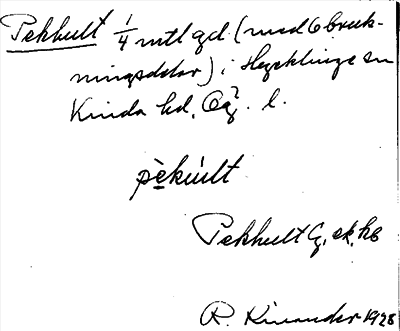 Pekhult 1/4 mtl gd (med 6 bruk-
ningsdelar) i Hycklinge sn
Kinda hd, Ög. l.
pèkúlt
Pekhult G. ek. kb
R. Kinander 1928